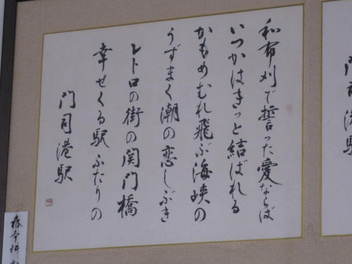 和布刈で誓った愛ならば
いつかはきっと結ばれる
かもめむれ飛ぶ海峡の
うずまく潮の恋しぶき
レトロの街の関門橋
幸せくる駅ふたりの
門司港駅